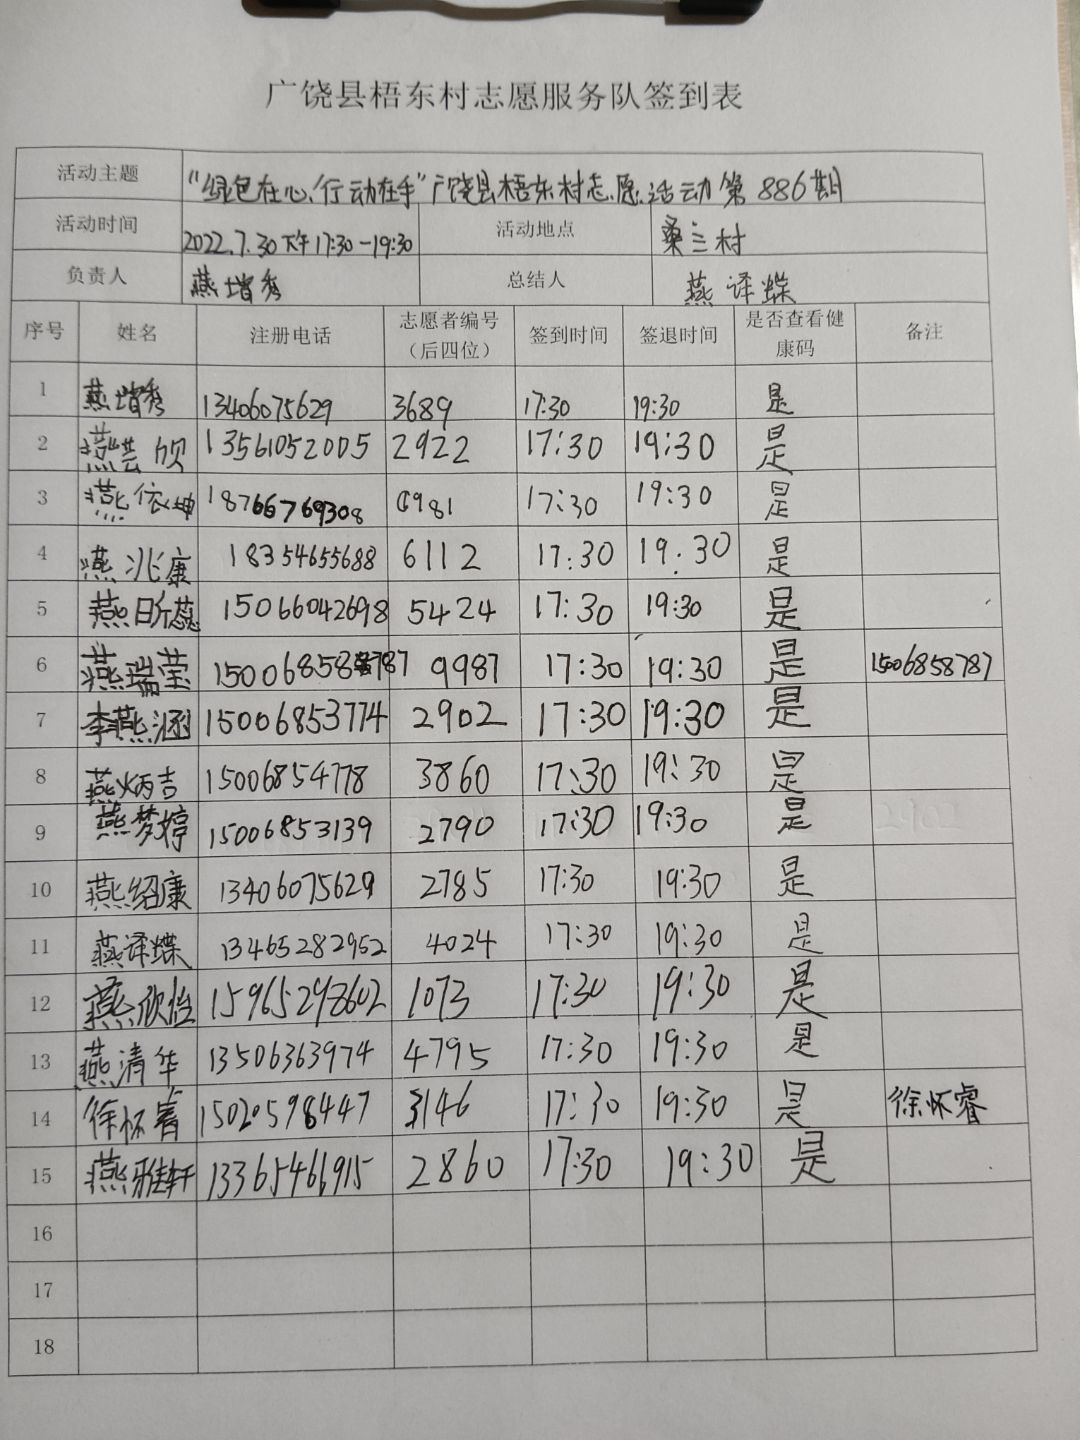 广饶县梧东村志愿服务队签到表
活动主题 "绿色在心,行动在手"广饶县梧东村志愿活动第886期
活动时间 2022.7.30下午17:30-19:30 活动地点 桑三村
负责人 燕增秀 总结人 燕译蝶
序号 姓名 注册电话 志愿者编号 签到时间 签退时间 是否查看健 备注
（后四位） 康码
1 燕增秀 13406075629 3689 17:30 19:30 是
2 燕芸 13561052005 2922 17:30 19:30 是
3 燕依坤 18766769308 0981 17:30 19:30 是
4 燕兆康 18354655688 6112 17:30 19:30 是
5 燕昕蕊 15066042698 5424 17:30 19:30 是
6 燕瑞莹 15006858787 9987 17:30 19:30 是 15006858787
7 李燕涵 15006853774 2902 17:30 19:30 是
8 燕炳吉 15006854778 3860 17:30 19:30 是
9 燕梦婷 15006853139 2790 17:30 19:30 是
10 燕绍康 13406075629 2785 17:30 19:30 是
11 燕译蝶 13465282952 4024 17:30 19:30 是
12 燕欣怡 15965298602 1073 17:30 19:30 是
13 燕清华 13506363974 4795 17:30 19:30 是
14 徐怀睿 15020598447 3146 17:30 19:30 是 徐怀睿
15 燕雅轩 13365466915 2860 17:30 19:30 是
16
17
18